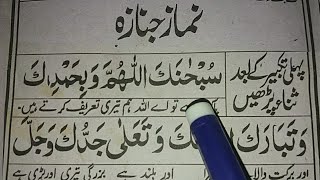 نماز جنازہ
پہلی تکبیر کے بعد
ثناء پڑھیں
سُبْحٰنَكَ اللّٰهُمَّ وَبِحَمْدِكَ
تو اے اللہ ہم تیری تعریف کرتے ہیں۔
وَتَبَارَكَ وَتَعَالٰی جَدُّكَ وَجَلَّ
اور برکت والا اور بلند ہے بزرگی تیری اور بڑی ہے